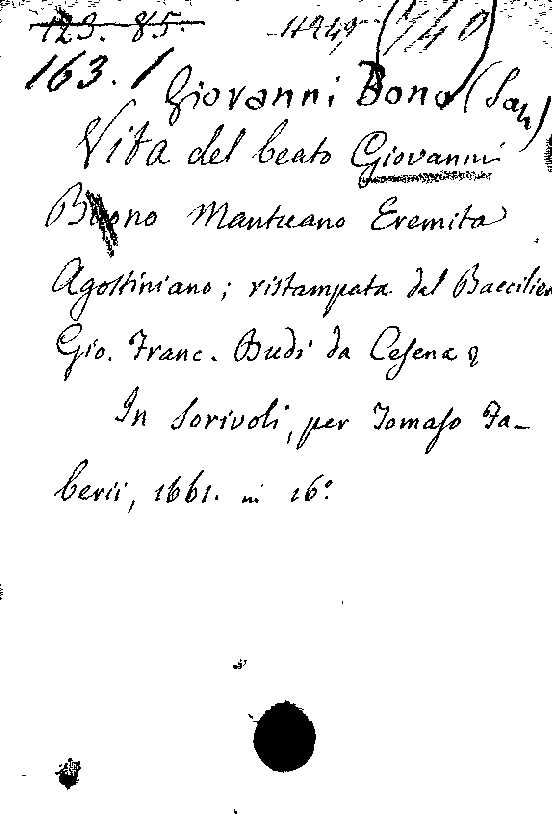 123. 85. 11249 (740)
163.1
Giovanni Bono (San)
Vita del beato Giovanni
Buono Mantuano Eremita
Agostiniano; ristampata dal Baccilier
Gio. Franc. Budi da Cesena
In Sorivoli, per Tomaso Fa-
berii, 1661. in 16°.